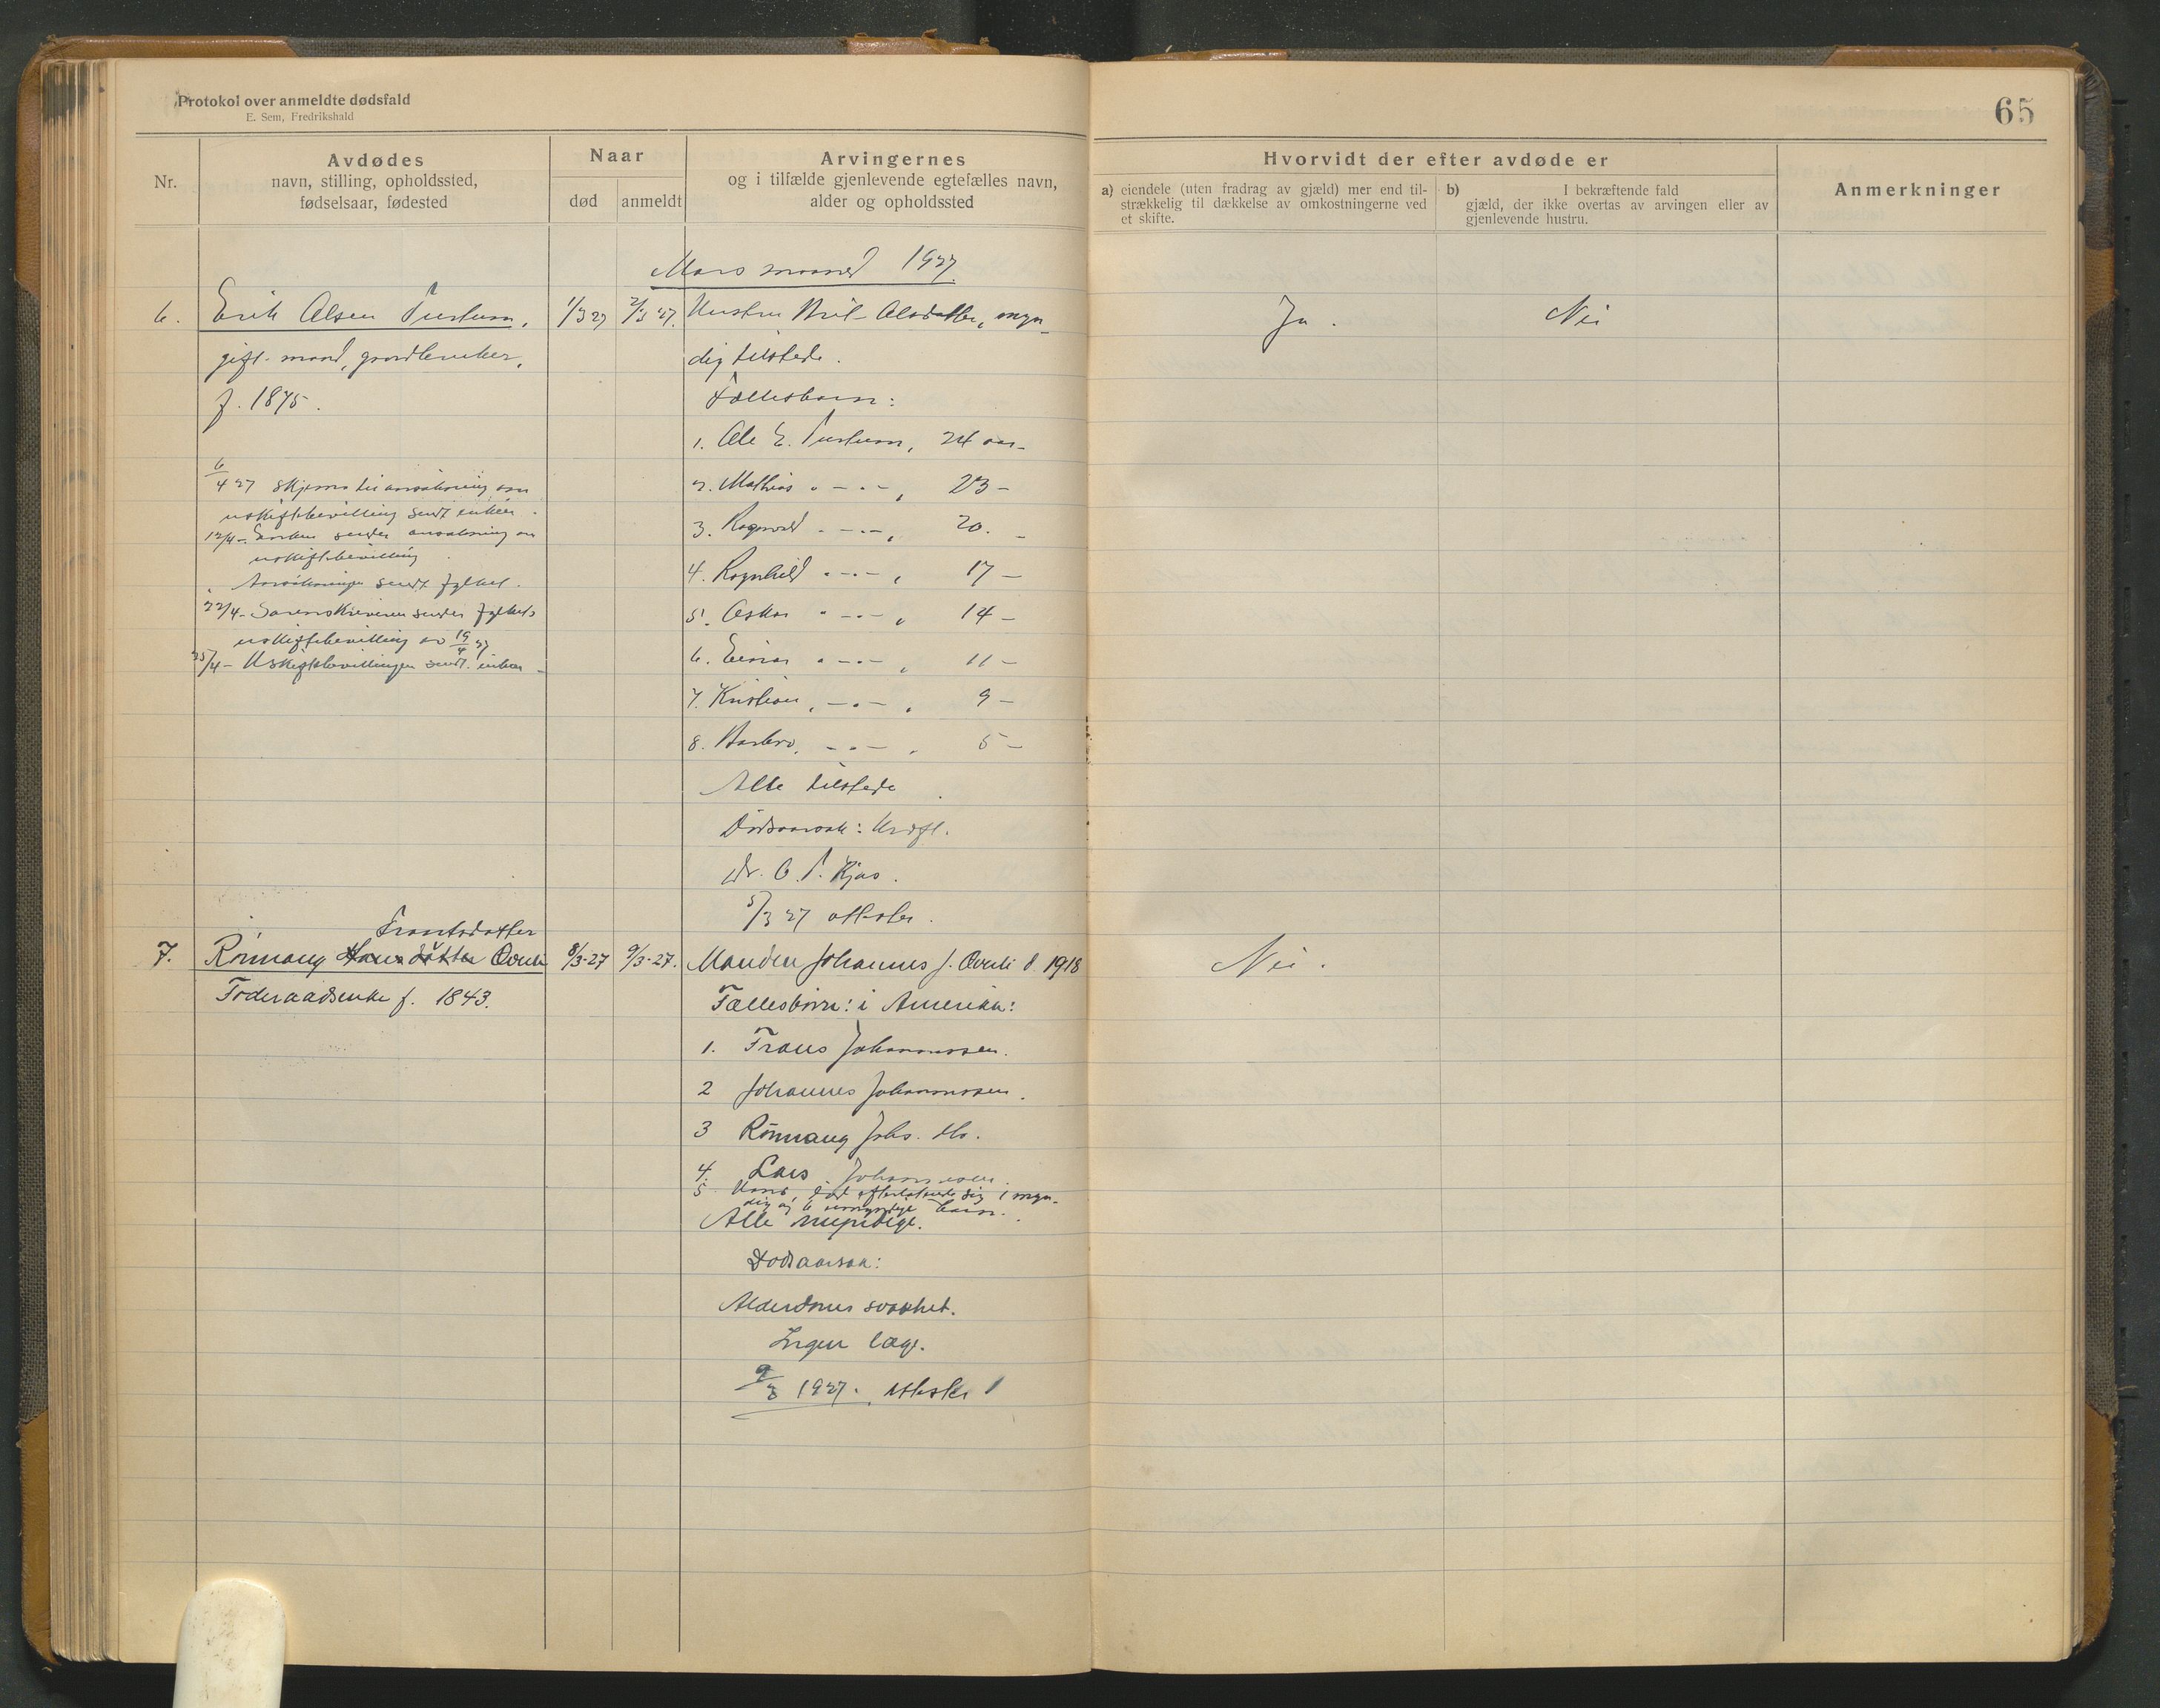 Protokol over anmeldte dødsfald
E. Sem, Fredrikshald
65
Nr.
Avdødes
navn, stilling, opholdssted,
fødselsaar, fødested
Naar
død
anmeldt
Arvingernes
og i tilfælde gjenlevende egtefælles navn,
alder og opholdssted
Hvorvidt der efter avdøde er
a) eiendele (uten fradrag av gjæld) mer end til-
strækkelig til dækkelse av omkostningerne ved
et skifte.
b) I bekræftende fald
gjæld, der ikke overtas av arvingen eller av
gjenlevende hustru.
Anmerkninger
Mars maaned 1927.
6. Erik Olsen 1/3 27 2/3 27. Hustru Brit Olsdatter, myn- Ja. Nei
gift mand, gardbruker, dig tilstede.
f. 1875. Fællesbarn:
1. Ole E. 24 aar
6/4 27 Skjema til ansøkning om
2. Mathias " - " - , 23 -
uskiftebevilling sendt enken.
3. Ragnvald " - " - , 20. -
12/4 - Enken sender ansøkning om
uskiftebevilling
4. Ragnhild " - " - , 17 -
" Ansökningen sendt fylket.
22/4 - Sorenskriveren sender fylkets
5. Oskar " - " - , 14 -
uskiftebevilling av 19/4 27.
25/4 - Uskiftebevillingen sendt enken -
6. Einar " - " - , 11 -
7. Kristian, - " - , 9 -
8. Barbro, - " - , 5 -
Alle tilstede.
Dødsaarsak: Kræft.
Dr. O. P. Kjos.
5/3 27 attester.
Frantsdatter
7. Rønnaug Hansdatter Øvreli 8/3-27 9/3-27. Manden Johannes J. Øvreli d. 1918 Nei.
Føderaadsenke f. 1843. Fællesbørn: i Amerika:
1. Frans Johannessen.
2 Johannes Johannessen.
3 Rønnaug Johs. dtr.
4. Lars Johannessen.
5 Hans, død efterlatende sig 1 myn-
dig og 6 umyndige barn.
Alle myndige.
Dødsaarsak:
Alderdoms svakhet.
Ingen læge.
9/3 1927. Attester 1